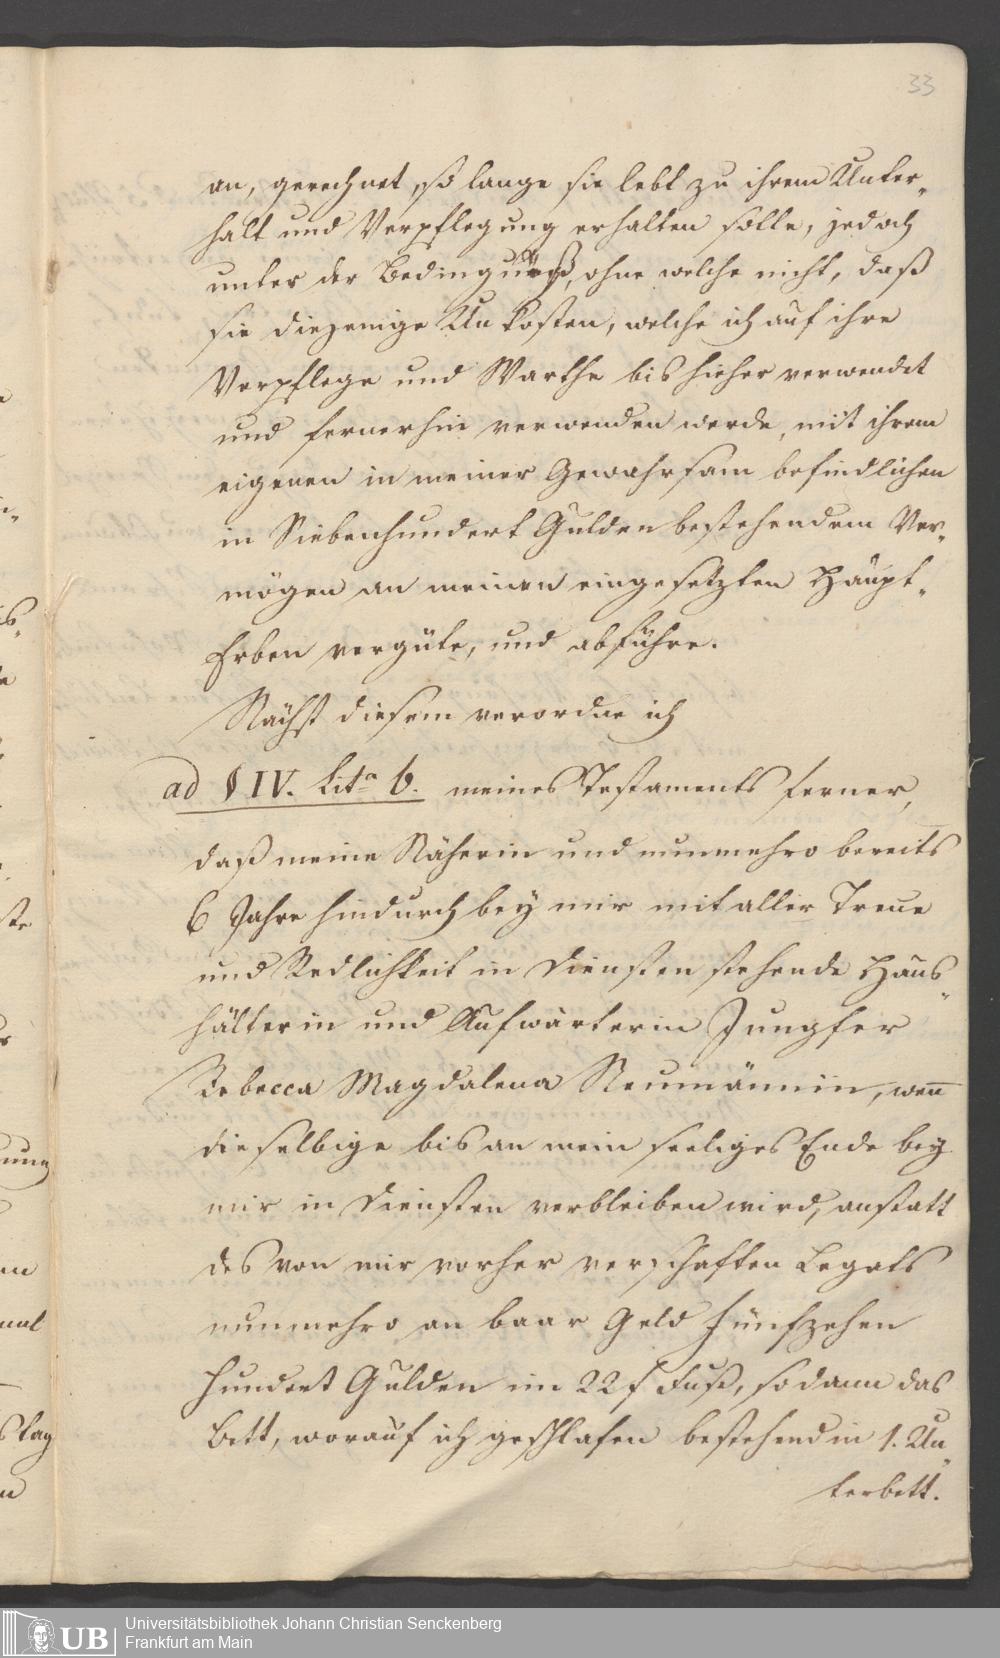 33
an, gerechnet, so lange sie lebt zu ihrem Unter-
halt und Verpflegung erhalten solle, jedoch
unter der Bedingnuß, ohne welche nicht, daß
sie diejenige Unkosten, welche ich auf ihre
Verpflege und Warthe bis hieher verwendet
und fernerhin verwenden werde, mit ihrem
eigenen in meiner Gewahrsam befindlichen
in Siebenhundert Gulden bestehendem Ver-
mögen an meinen eingesetzten Haupt-
Erben vergüte, und abführe.
Nächst diesem verordne ich
ad § IV. Lita b. meines Testaments ferner,
daß meine Näherin und nunmehro bereits
6 Jahre hindurch bey mir mit aller Treue
und Redlichkeit in Diensten stehende Haus-
hälterin und Aufwärterin Jungfer
Rebecca Magdalena Neumännin, wen̄
dieselbige bis an mein seeliges Ende bey
mir in Diensten verbleiben wird, anstatt
des von mir vorher verschafften Legats
nunmehro an baar Geld Fünfzehen
hundert Gulden im 22 f Fuß, sodann das
Bett, worauf ich geschlafen bestehend in 1. Un-
terbett.
UB
Universitätsbibliothek Johann Christian Senckenberg
Frankfurt am Main